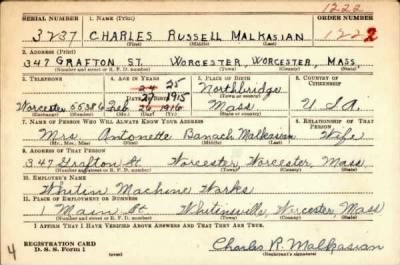 1222
SERIAL NUMBER 1. NAME (Print) ORDER NUMBER
3237 CHARLES RUSSELL MALKASIAN 1222
(First) (Middle) (Last)
2. ADDRESS (Print)
347 GRAFTON ST. WORCESTER, WORCESTER, MASS.
(Number and street or R. F. D. number) (Town) (County) (State)
3. TELEPHONE 4. AGE IN YEARS 5. PLACE OF BIRTH 6. COUNTRY OF CITIZENSHIP
24 25
Northbridge
DATE OF BIRTH (Town or county)
27 1915
Worcester 55386 Feb 26 1916 Mass U S A
(Exchange) (Number) (Mo.) (Day) (Yr.) (State or country)
7. NAME OF PERSON WHO WILL ALWAYS KNOW YOUR ADDRESS 8. RELATIONSHIP OF THAT PERSON
Mrs. Antonette Banach Malkasian Wife
(Mr., Mrs., Miss) (First) (Middle) (Last)
9. ADDRESS OF THAT PERSON
347 Grafton St. Worcester, Worcester, Mass
(Number and street or R. F. D. number) (Town) (County) (State)
10. EMPLOYER'S NAME
Whitin Machine Works
11. PLACE OF EMPLOYMENT OR BUSINESS
1 Main St Whitinsville, Worcester, Mass
(Number and street or R. F. D. number) (Town) (County) (State)
I AFFIRM THAT I HAVE VERIFIED ABOVE ANSWERS AND THAT THEY ARE TRUE.
REGISTRATION CARD
D. S. S. Form 1 (over) Charles R. Malkasian
(Registrant's signature)
4